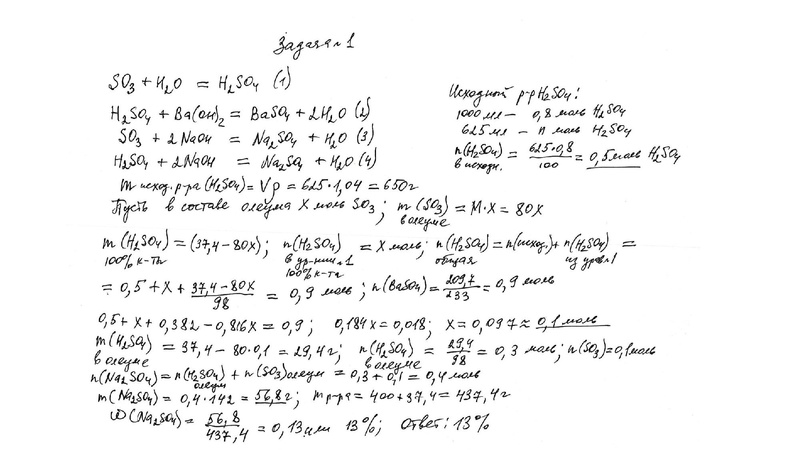 Задача №1
SO₃ + H₂O = H₂SO₄ (1)
H₂SO₄ + Ba(OH)₂ = BaSO₄ + 2H₂O (2)
SO₃ + 2NaOH = Na₂SO₄ + H₂O (3)
H₂SO₄ + 2NaOH = Na₂SO₄ + H₂O (4)
Исходный р-р H₂SO₄:
1000 мл – 0,8 моль H₂SO₄
625 мл – n моль H₂SO₄
n(H₂SO₄) в исходн. = 625·0,8 / 100 = 0,5 моль H₂SO₄
m исход. р-ра (H₂SO₄) = Vρ = 625·1,04 = 650г
Пусть в составе олеума X моль SO₃; m(SO₃) в олеуме = M·X = 80X
m(H₂SO₄) 100% к-та = (37,4 – 80X); n(H₂SO₄) в ур-нии 1 100% к-та = X моль; n(H₂SO₄) общая = n(исход.) + n(H₂SO₄) из урав.1 =
= 0,5 + X + 37,4 – 80X / 98 = 0,9 моль; n(BaSO₄) = 209,7 / 233 = 0,9 моль
0,5 + X + 0,382 – 0,816X = 0,9; 0,184X = 0,018; X = 0,097 ≈ 0,1 моль
m(H₂SO₄) в олеуме = 37,4 – 80·0,1 = 29,4г; n(H₂SO₄) в олеуме = 29,4 / 98 = 0,3 моль; n(SO₃) = 0,1 моль
n(Na₂SO₄) = n(H₂SO₄) олеум + n(SO₃) олеум = 0,3 + 0,1 = 0,4 моль
m(Na₂SO₄) = 0,4·142 = 56,8г; m р-ра = 400 + 37,4 = 437,4г
ω(Na₂SO₄) = 56,8 / 437,4 = 0,13 или 13%; Ответ: 13%